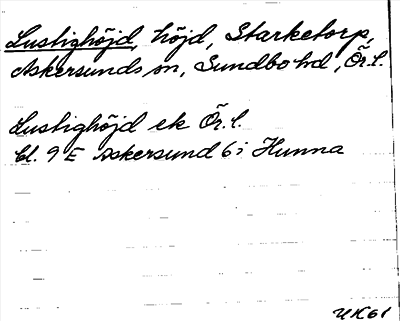 Lustighöjd, höjd, Starketorp,
Askersunds sn, Sundbo hd, Ör.l.
Lustighöjd ek Ör.l.
bl. 9 E Askersund 6 i Hunna
UK61